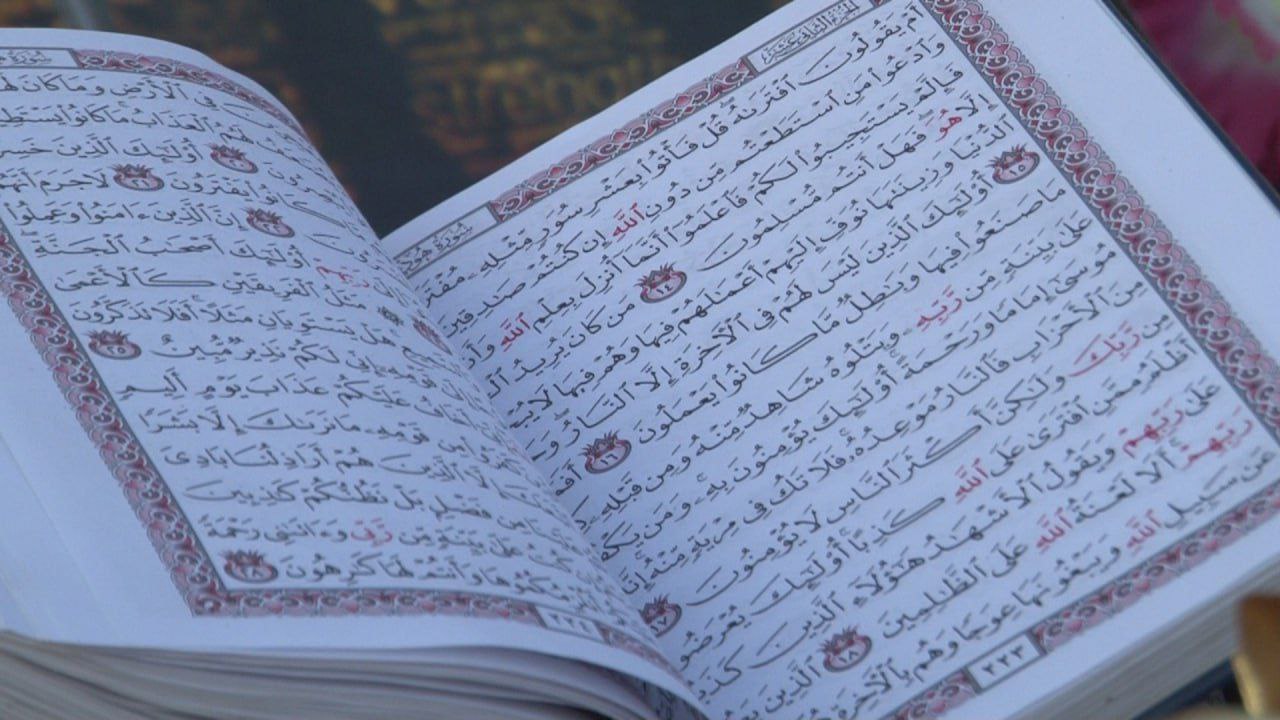 الجزء الثاني عشر
سُورَةُ هُودٍ
أَمْ يَقُولُونَ ٱفْتَرَىٰهُ قُلْ فَأْتُوا۟ بِعَشْرِ سُوَرٍ مِّثْلِهِۦ
وَٱدْعُوا۟ مَنِ ٱسْتَطَعْتُم مِّن دُونِ ٱللَّهِ إِن كُنتُمْ صَٰدِقِينَ
فَإِلَّمْ يَسْتَجِيبُوا۟ لَكُمْ فَٱعْلَمُوٓا۟ أَنَّمَآ أُنزِلَ بِعِلْمِ ٱللَّهِ
إِلَّا هُوَ فَهَلْ أَنتُم مُّسْلِمُونَ ١٤ مَن كَانَ يُرِيدُ
ٱلدُّنْيَا وَزِينَتَهَا نُوَفِّ إِلَيْهِمْ أَعْمَٰلَهُمْ فِيهَا وَهُمْ فِيهَا لَا
١٥ أُو۟لَٰٓئِكَ ٱلَّذِينَ لَيْسَ لَهُمْ فِى ٱلْءَاخِرَةِ إِلَّا ٱلنَّارُ
مَا صَنَعُوا۟ فِيهَا وَبَٰطِلٌ مَّا كَانُوا۟ يَعْمَلُونَ ١٦
عَلَىٰ بَيِّنَةٍ مِّن رَّبِّهِۦ وَيَتْلُوهُ شَاهِدٌ مِّنْهُ وَمِن قَبْلِهِۦ
مُوسَىٰٓ إِمَامًا وَرَحْمَةً أُو۟لَٰٓئِكَ يُؤْمِنُونَ بِهِۦ وَمَن
مِنَ ٱلْأَحْزَابِ فَٱلنَّارُ مَوْعِدُهُۥ فَلَا تَكُ فِى مِرْيَةٍ مِّنْهُ
مِن رَّبِّكَ وَلَٰكِنَّ أَكْثَرَ ٱلنَّاسِ لَا يُؤْمِنُونَ ١٧
أَظْلَمُ مِمَّنِ ٱفْتَرَىٰ عَلَى ٱللَّهِ كَذِبًا أُو۟لَٰٓئِكَ
عَلَىٰ رَبِّهِمْ وَيَقُولُ ٱلْأَشْهَٰدُ هَٰٓؤُلَآءِ ٱلَّذِينَ
رَبِّهِمْ أَلَا لَعْنَةُ ٱللَّهِ عَلَى ٱلظَّٰلِمِينَ ١٨ ٱلَّذِينَ
عَن سَبِيلِ ٱللَّهِ وَيَبْغُونَهَا عِوَجًا وَهُم بِٱلْءَاخِرَةِ
٢٢٣
سُورَةُ
فِى ٱلْأَرْضِ وَمَا كَانَ
ٱلْعَذَابُ مَا كَانُوا۟
٢٠ أُو۟لَٰٓئِكَ ٱلَّذِينَ
كَانُوا۟ يَفْتَرُونَ ٢١ لَا جَرَمَ أَنَّهُمْ
٢٢ إِنَّ ٱلَّذِينَ ءَامَنُوا۟ وَعَمِلُوا۟
أُو۟لَٰٓئِكَ أَصْحَٰبُ ٱلْجَنَّةِ
مَثَلُ ٱلْفَرِيقَيْنِ كَٱلْأَعْمَىٰ
هَلْ يَسْتَوِيَانِ مَثَلًا أَفَلَا تَذَكَّرُونَ
إِنِّى لَكُمْ نَذِيرٌ مُّبِينٌ ٢٥
عَلَيْكُمْ عَذَابَ يَوْمٍ أَلِيمٍ
مِن قَوْمِهِۦ مَا نَرَىٰكَ إِلَّا بَشَرًا
إِلَّا ٱلَّذِينَ هُمْ أَرَاذِلُنَا بَادِىَ
مِن فَضْلٍۭ بَلْ نَظُنُّكُمْ كَٰذِبِينَ
عَلَىٰ بَيِّنَةٍ مِّن رَّبِّى وَءَاتَىٰنِى رَحْمَةً
وَأَنتُمْ لَهَا كَٰرِهُونَ ٢٨
٢٢٤